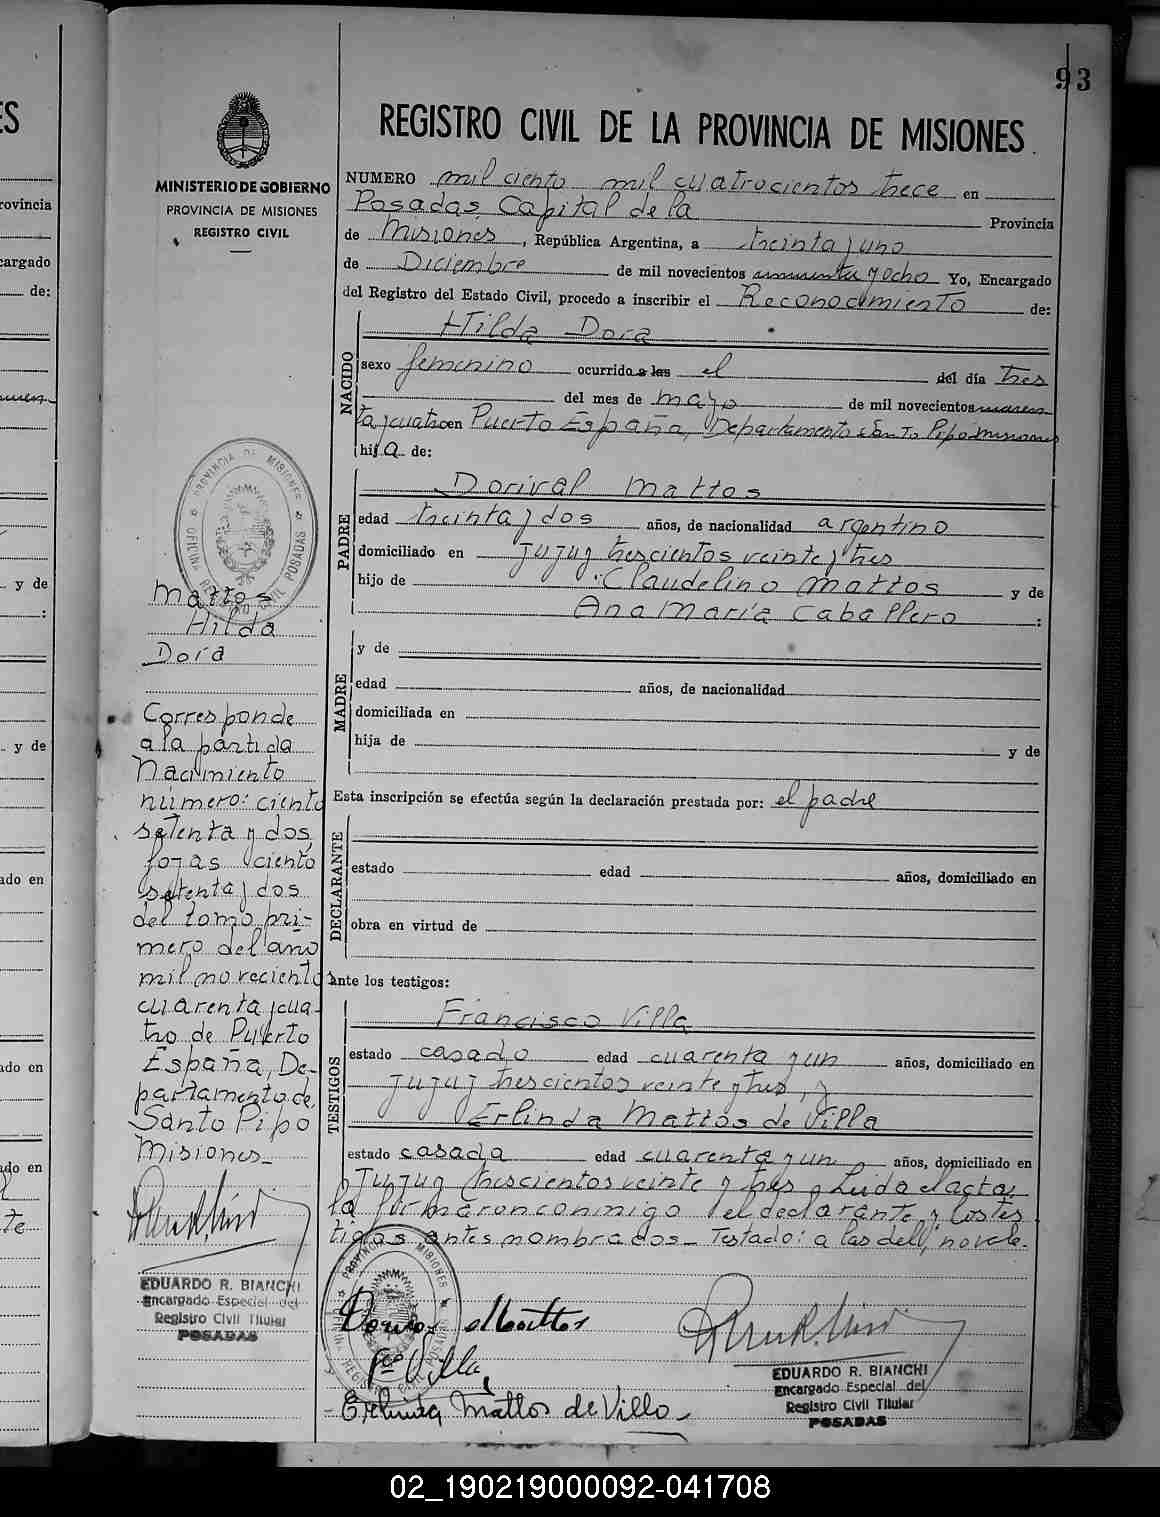 93
REGISTRO CIVIL DE LA PROVINCIA DE MISIONES
MINISTERIO DE GOBIERNO
PROVINCIA DE MISIONES
REGISTRO CIVIL
NUMERO mil ciento mil cuatrocientos trece en
Posadas Capital de la Provincia
de Misiones, República Argentina, a treinta y uno
de Diciembre de mil novecientos cincuenta y ocho Yo, Encargado
del Registro del Estado Civil, procedo a inscribir el Reconocimiento de:
Hilda Dora
NACIDO
sexo femenino ocurrido a las el del día tres
del mes de mayo de mil novecientos cuaren
ta y cuatro en Puerto España, Departamento Santo Pipó Misiones
hija de:
Dorival Mattos
PADRE
edad treinta y dos años, de nacionalidad argentino
domiciliado en Jujuy trescientos veinte y tres
hijo de Claudelino Mattos y de
Ana María Caballero :
y de
MADRE
edad años, de nacionalidad
domiciliada en
hija de y de
Esta inscripción se efectúa según la declaración prestada por: el padre
DECLARANTE
estado edad años, domiciliado en
obra en virtud de
ante los testigos:
Francisco Villa
TESTIGOS
estado casado edad cuarenta y un años, domiciliado en
Jujuy trescientos veinte y tres, y
Erlinda Mattos de Villa
estado casada edad cuarenta y un años, domiciliado en
Jujuy trescientos veinte y tres Leida el acta
la firmaron conmigo el declarante y los tes
tigos antes nombrados_ Testado: a las del, no vale.
Mattos
Hilda
Dora
Corresponde
a la partida
Nacimiento
número: ciento
setenta y dos
fojas ciento
setenta y dos
del tomo pri-
mero del año
mil noveciento
cuarenta y cua-
tro de Puerto
España, De-
partamento de
Santo Pipo
Misiones_
EDUARDO R. BIANCHI
Encargado Especial del
Registro Civil Titular
POSADAS
PROVINCIA DE MISIONES
POSADAS
Mattos
Fco Villa
Mattos de Villa
EDUARDO R. BIANCHI
Encargado Especial del
Registro Civil Titular
POSADAS
ES
rovincia
cargado
de:
y de
:
y de
ado en
ado en
ado en
te
02_190219000092-041708